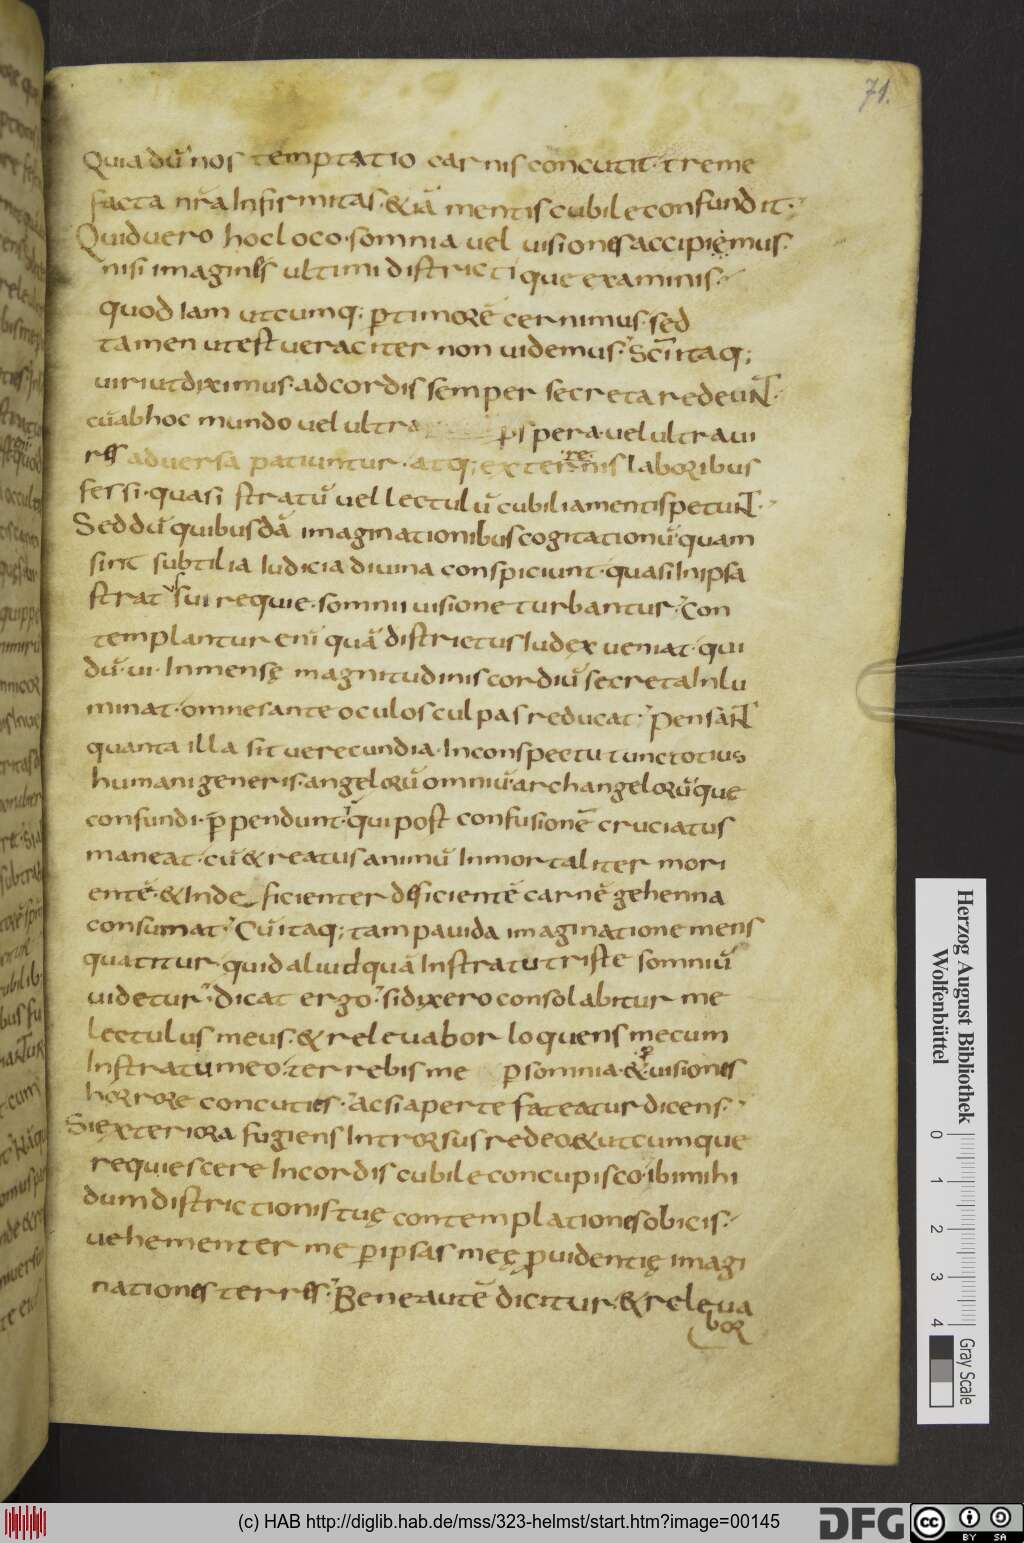 71.
Quia dū nos temptatio carnis concutit· treme
facta nr̄a Infirmitas· & iā mentis cubile confundit·
Quid uero hoc loco· somnia uel uisiones accipiemus·
nisi imagines ultimi districti que examinis·
quod Iam utcumq; p timorē cernimus· sed
tamen ut est ueraciter non uidemus· Sc̄i itaq;
uiri ut diximus· ad cordis semper secreta redeuNT·
cū ab hoc mundo uel ultra pspera· uel ultra ui
res aduersa patiuntur· atq; exterrenis laboribus
fessi· quasi stratū uel lectulū cubilia mentis petuNT·
Sed dū quibusdā imaginationibus cogitationū quam
sint subtilia Iudicia diuina conspiciunt· quasi In ipsa
strat sui requie· somnii uisione turbantur· Con
templantur eni quā districtus Iudex ueniat· qui
dū· ui· Inmensę magnitudinis cordiū secreta Inlu
minat· omnes ante oculos culpas reducat; PensaNT
quanta illa sit uerecundia· In conspectu tunc totius
humani generis· angelorū omniū· archangelorū que
confundi· ppendunt· qui post confusionē cruciatus
maneat· cū & reatus animū Inmortaliter mori
entē· & Inde ficienter deficientē carnē gehenna
consumat· Cū itaq; tam pauida imaginatione mens
quatitur· quid aliud quā In stratu triste somniū
uidetur· dicat ergo· si dixero consolabitur me
lectulus meus· & releuabor loquens mecum
In stratu meo· terrebis me p somnia· & p uisiones
horrore concuties· Ac si aperte fateatur dicens·
Si exteriora fugiens Introrsus redeo & utcumque
requiescere In cordis cubile concupisco· ibi mihi
dum districtionis tuę contemplationes obicis·
uehementer me p ipsas meę prouidentię imagi
nationes terres· Bene autē dicitur· & releua
bor
Herzog August Bibliothek
Wolfenbüttel
0 1 2 3 4
Gray Scale
(c) HAB http://diglib.hab.de/mss/323-helmst/start.htm?image=00145
DFG
cc BY SA